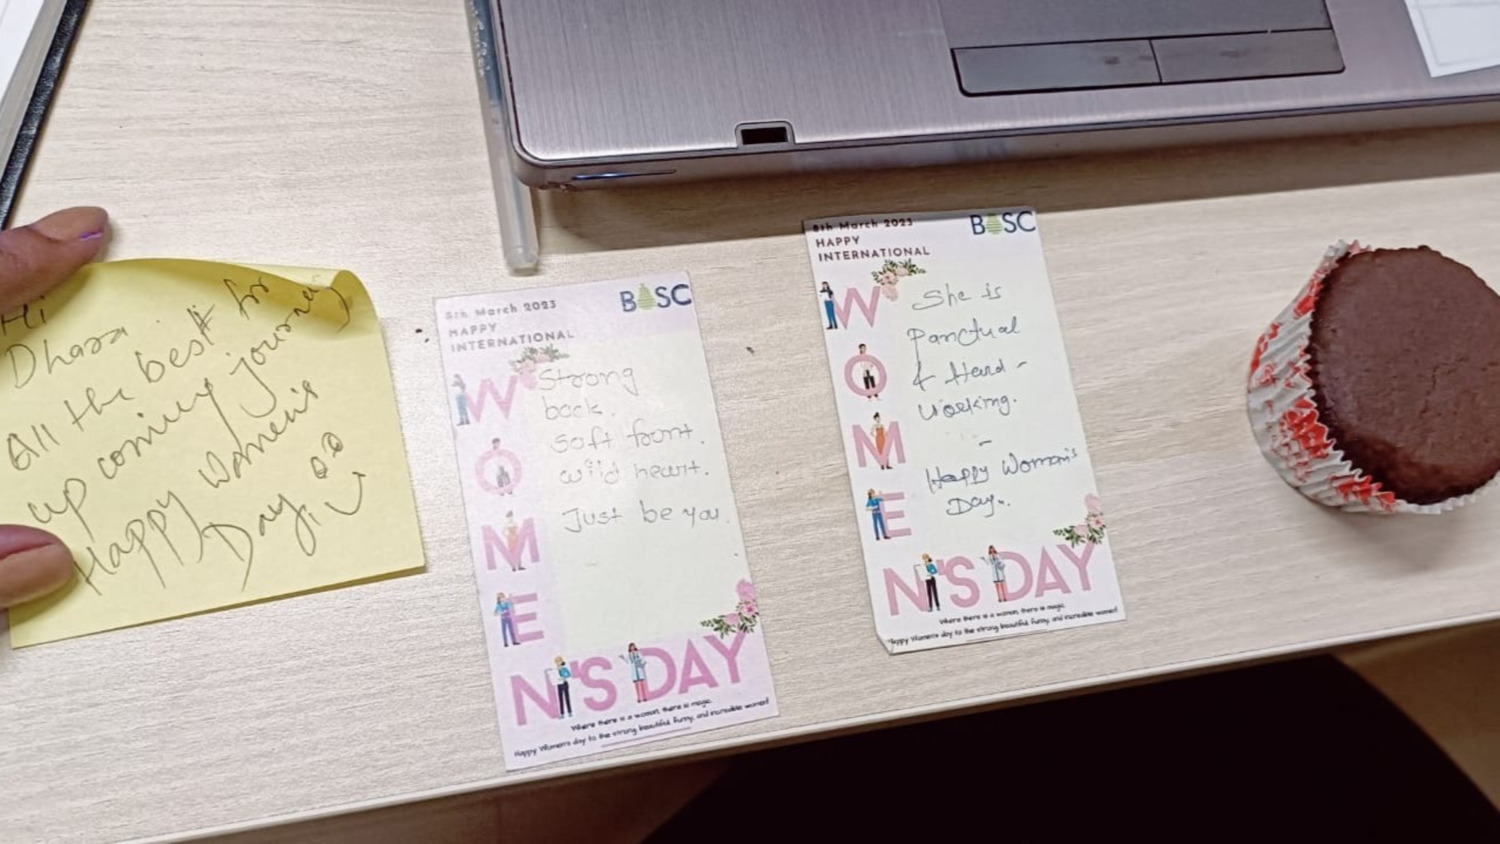 Hi
Dhara
All the best for
up coming journey
Happy Women's
Day!
8th March 2023
BOSC
HAPPY
INTERNATIONAL
WOMEN'S DAY
Strong
back.
Soft front.
wild heart.
Just be you.
Where there is a woman, there is magic.
Happy Women's day to the strong, beautiful, funny, and incredible women!
8th March 2023
BOSC
HAPPY
INTERNATIONAL
WOMEN'S DAY
She is
Panctual
& Hard-
working.
-
Happy Woman's
Day..
Where there is a woman, there is magic.
Happy Women's day to the strong, beautiful, funny, and incredible women!